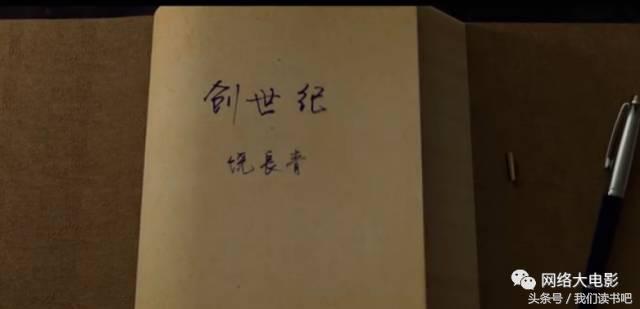 创世纪
饶長青
网络大电影
头条号/我们读书吧